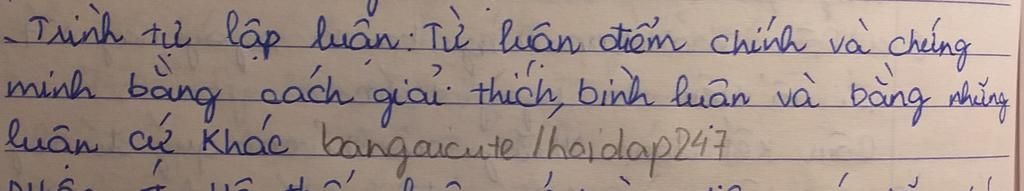 Trình tự lập luận: Từ luận điểm chính và chứng
minh bằng cách giải thích, bình luận và bằng những
luận cứ khác bangaicute/hoidap247